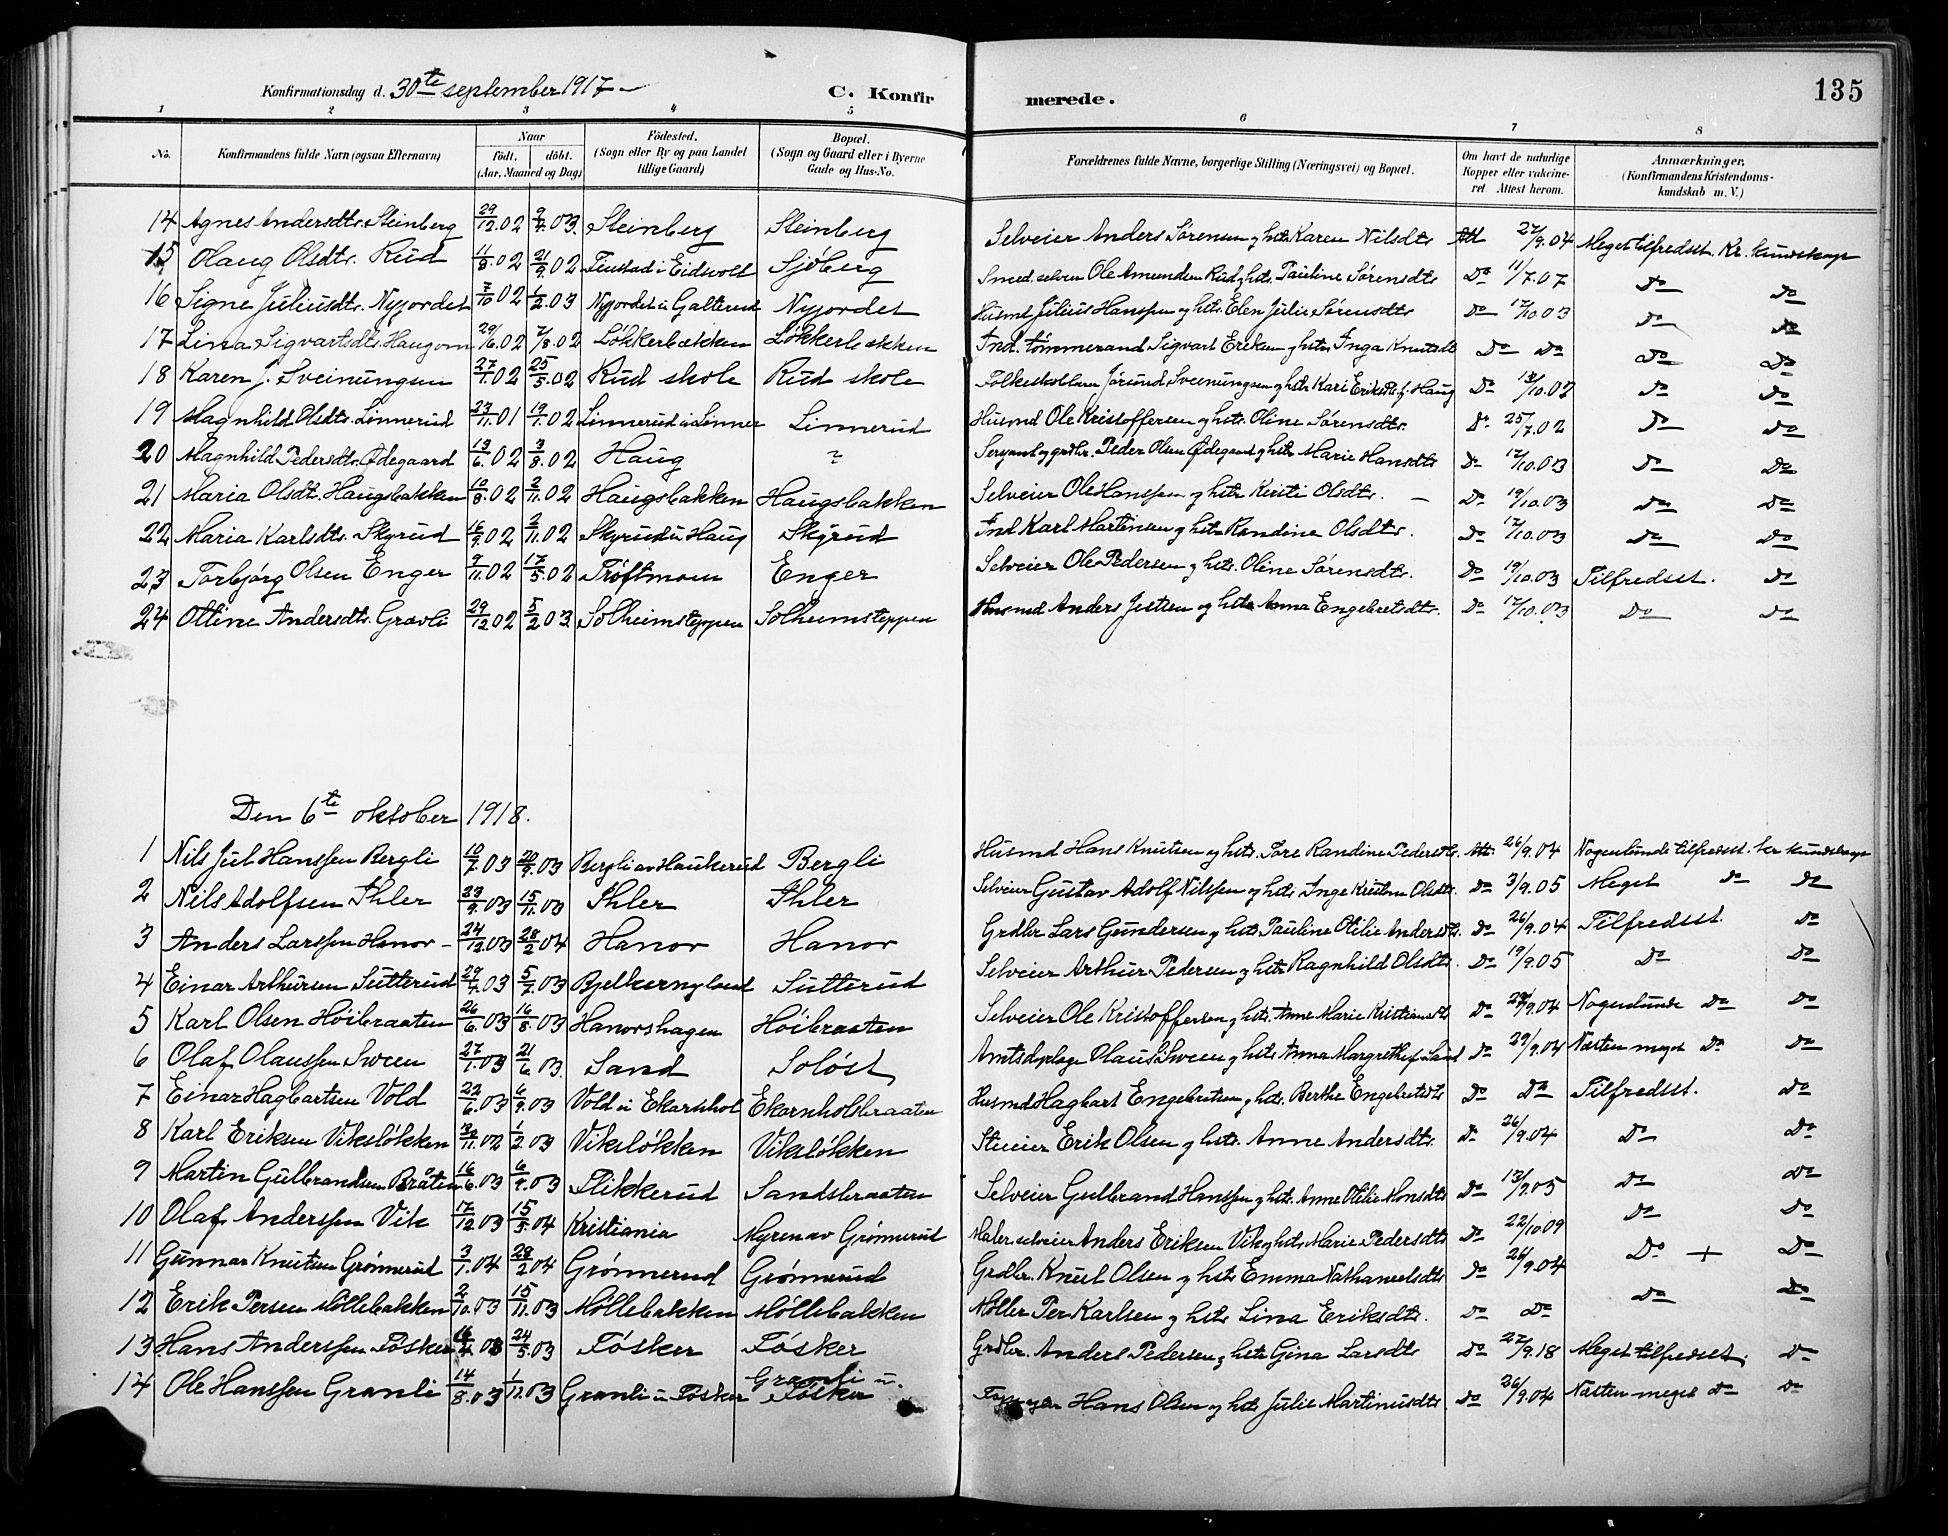 135
Konfirmationsdag d. 30te september 1917 C. Konfirmerede.
1 2 3 4 5 6 7 8
No. Konfirmandens fulde Navn (ogsaa Efternavn) Naar födt. döbt. (Aar, Maaned og Dag) Födested. (Sogn eller By og paa Landet tillige Gaard) Bopæl. (Sogn og Gaard eller i Byerne Gade og Hus-No. Forældrenes fulde Navne, borgerlige Stilling (Næringsvei) og Bopæl. Om havt de naturlige Kopper eller vakcineret. Attest herom. Anmærkninger. (Konfirmandens Kristendomskundskab m. V.)
14 Agnes Andersdtr. Steinberg 29/12.02 9/4.03 Steinberg Steinberg Selveier Anders Sørensen og hstr. Karen Nilsdtr. Att 27/9.04 Meget tilfredsst. Kr. kundskap
15 Olaug Olsdtr. Rud 11/8.02 21/9.02 Finstad i Eidsvold Sjøberg Smed selveier Ole Amundsen Rud og hstr. Pauline Sørensdtr. Do 11/7.07 Do Do
16 Signe Juliusdt. Nyjordet 7/10 02 1/2.03 Nyjordet u Galterud Nyjordet Husmd Julius Hanssen og hstr. Elen Julie Sørensdtr. Do 17/10.03 Do Do
17 Lina Sigvartsdtr. Haugom 29/6.02 7/8.02 Løkkerbækken Løkkerbækken Ind. tømmermand Sigvart Eriksen og hstr. Inga Knutsdt Do Do Do Do
18 Karen J. Sveinungsen 27/1.02 25/5.02 Rud skole Rud skole Folkeskollærer Jørund Sveinungsen og hstr. Kari Eriksdtr. f. Haug Do 13/10.02 Do Do
19 Magnhild Olsdtr. Linnerud 27/11.01 19/1.02 Linnerud u Linner Linnerud Husmd Ole Kristoffersen og hstr. Oline Sørensdtr. Do 25/7.02 Do Do
20 Magnhild Pedersdtr. Ødegaard 13/6.02 3/8.02 Haug ? Sersjant og grdbr. Peder Olsen Ødegaard og hstr. Marie Hansdtr Do 17/10.03 Do Do
21 Maria Olsdt. Haugsbakken 10/8.02 2/11.02 Haugsbakken Haugsbakken Selveier Ole Hanssen og hstr. Kersti Olsdtr. Do 19/10.03 Do Do
22 Maria Karlsdtr. Skyrud 16/9.02 2/11.02 Skyrud u Haug Skyrud Ind Karl Martinsen og hstr. Randine Olsdtr. Do 17/10.03 Do Do
23 Torbjørg Olsen Enger 9/11.02 17/5.02 Trøftmoen Enger Selveier Ole Pedersen og hstr. Oline Sørensdtr. Do 19/10.03 Tilfredsst. Do
24 Ottine Andersdtr. Gravli 29/12 02 5/2 03 Solheimsteppen Solheimsteppen Husmd Anders Justsen og hstr. Anna Engebretsdtr. Do 17/10.03 Do Do
Den 6te oktober 1918.
1 Nils Jul Hanssen Bergli 10/7.03 20/9.03 Bergli av Haukerud Bergli Husmd Hans Knutsen og hstr. Tore Randine Pedersdtr. Att. 26/9.04 Nogenlunde tilfredsst. kr kundskap
2 Nils Adolfsen Ihler 23/9.03 15/11.03 Ihler Ihler Selveier Gustav Adolf Nilssen og hstr. Inge Kristine Olsdtr. Do 3/9.05 Meget Do Do
3 Anders Larssen Hanor 24/12.03 28/2 04 Hanor Hanor Grdbr Lars Gundersen og hstr. Pauline Otilie Andersdtr. Do 26/9.04 Tilfredsst. Do
4 Einar Arthursen Sutterud 29/4.03 5/7.03 Bjelkernyland Sutterud Selveier Arthur Pedersen og hstr. Ragnhild Olsdtr. Do 19/9.05 Do Do
5 Karl Olsen Höibraaten 26/6.03 16/8.03 Hanorshagen Höibraaten Selveier Ole Kristoffersen og hstr. Anne Marie Kristiansdtr Do 29/9.04 Nogenlunde Do Do
6 Olaf Olaussen Sween 27/1.03 21/6 03. Sand Soløst Olaus Sween og hstr. Anna Margrethe f. Sand Do 29/9.04 Næsten meget Do Do
7 Einar Hagbartsen Vold 22/6.03 6/9.03 Vold u Ekornhol Ekornholsbraaten Husmd Hagbart Engebretsen og hstr. Berthe Engebretsdtr Do Do Tilfredsst. Do
8 Karl Eriksen Viksløkken 30/11.02 1/2.03 Viksløkken Viksløkken Erik Olsen og hstr. Anne Andersdtr. Do 26/9.04 Do Do
9 Martin Gulbrandsen Bråten 16/6.03 6/9.03 Slikkerud Sandsbraaten Selveier Gulbrand Hanssen og hstr. Anne Otilie Monsdtr Do 13/9.05 Do Do
10 Olaf Anderssen Vik 17/12.03 15/5.04 Kristiania Myren av Grønnerud Maler selveier Anders Eriksen Vik og hstr. Marie Pedersdtr Do 22/10 09 Do Do
11 Gunnar Knutsen Grønnerud 3/1.04 28/2 04 Grønnerud Grønnerud Grdbr. Knut Olsen og hstr. Emma Nathanaelsdtr Do 26/9.04 Do + Do
12 Erik Persen Møllebakken 2/10.03 15/11.03 Møllebakken Møllebakken Møller Per Karlsen og hstr. Lina Eriksdtr. Do Do Do Do
13 Hans Anderssen Fösker 16/4 03 24/5.03 Fösker Fösker Grdbr. Anders Pedersen og hstr. Gina Larsdtr Do 27/9.18 Meget tilfredsst. Do
14 Ole Hanssen Granli 14/8.03 1/11.03 Granli u Fösker Granli u. Fösker Hans Olsen og hstr. Julie Martinusdtr Do 26/9.04 Næsten meget Do Do